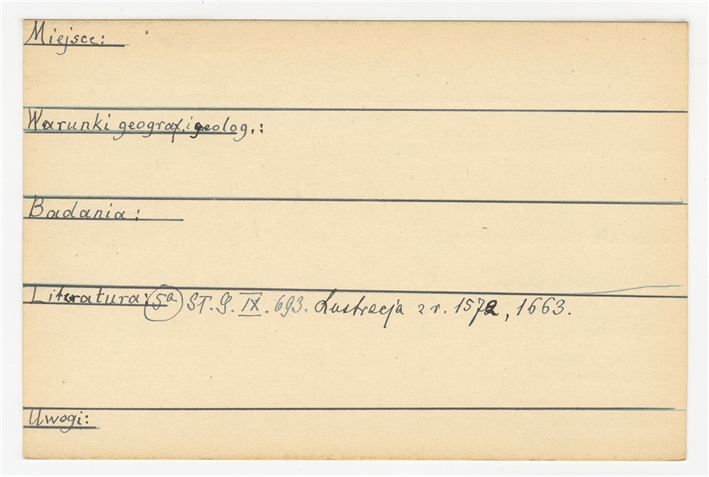 Miejsce:
Warunki geograf. i geolog.:
Badania:
Literatura: 5a ST. G. IX. 693. Lustracja z r. 1572, 1663.
Uwagi: